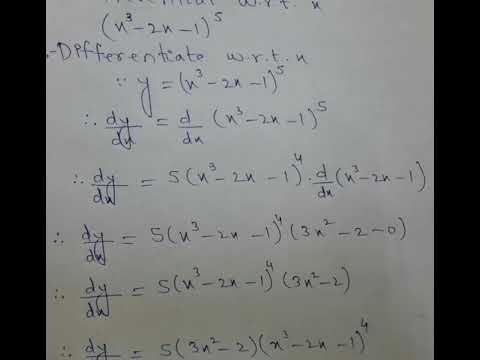 w.r.t. x
(x³-2x-1)⁵
Differentiate w.r.t. x
∵ y = (x³-2x-1)⁵
∴ dy/dx = d/dx (x³-2x-1)⁵
∴ dy/dx = 5(x³-2x-1)⁴ · d/dx (x³-2x-1)
∴ dy/dx = 5(x³-2x-1)⁴ (3x²-2-0)
∴ dy/dx = 5(x³-2x-1)⁴ (3x²-2)
∴ dy/dx = 5(3x²-2)(x³-2x-1)⁴